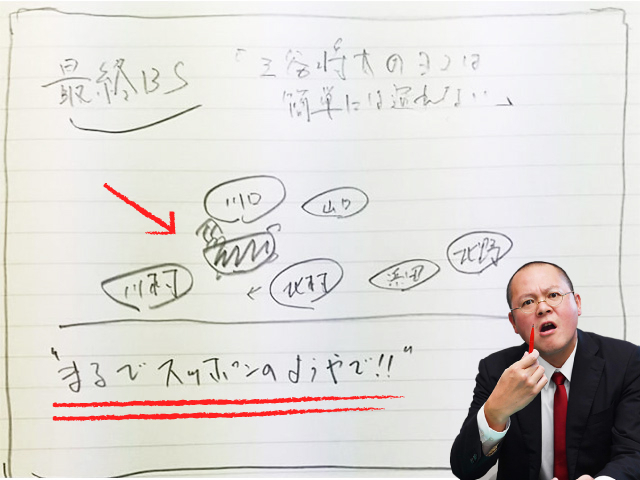 最終BS
「三谷将太のヨコは
簡単には逃れない」
川口
山口
川村
北村
浜田
北野
"まるでスッポンのようやで!!"